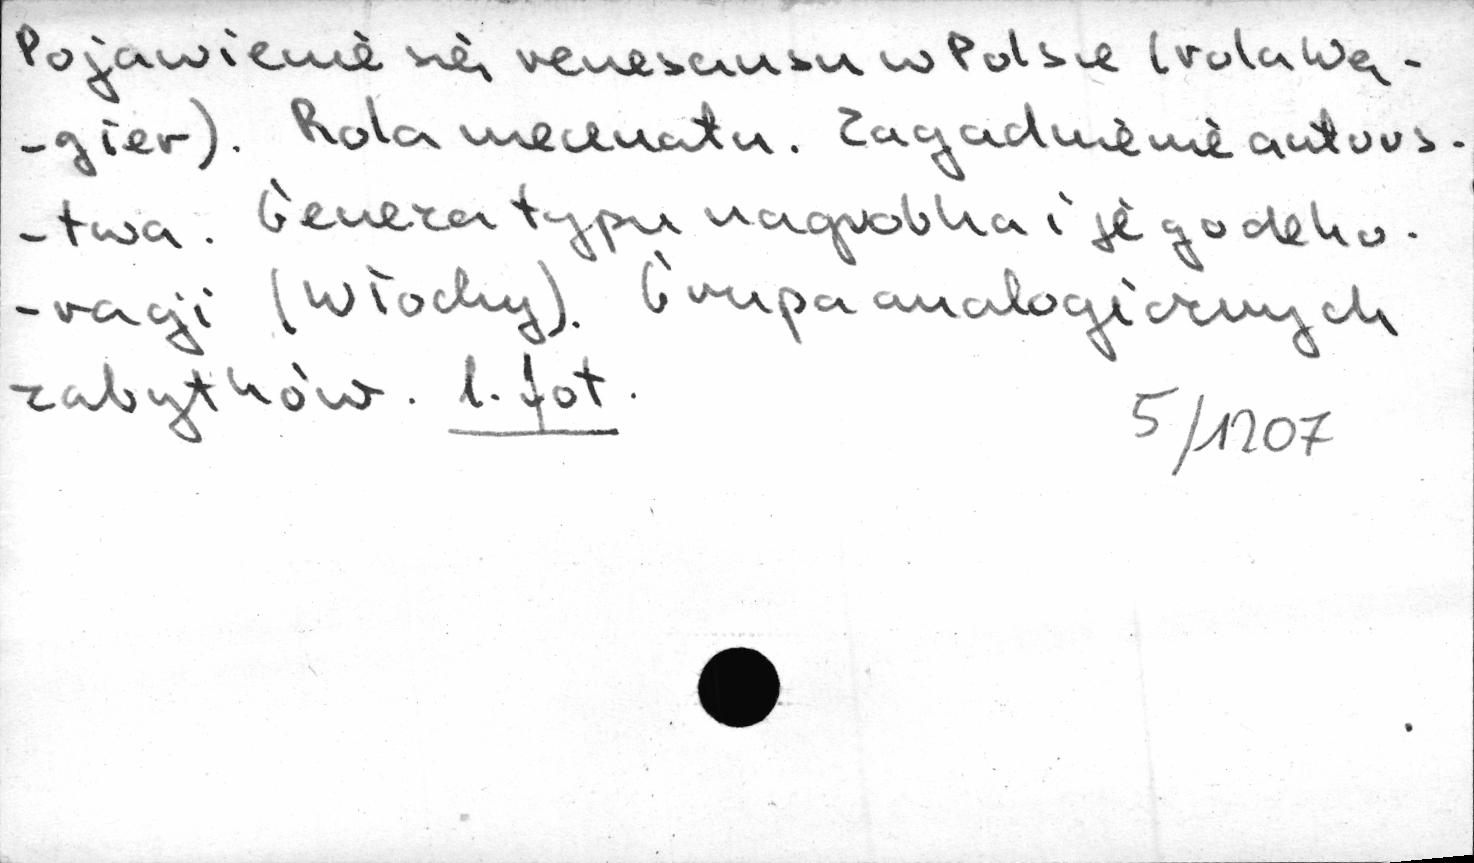 Pojawienie się renesansu w Polsce (rola Wę-
-gier). Rola mecenatu. Zagadnienie autors-
-twa. Geneza typu nagrobka i jego deko-
-racji (Włochy). Grupa analogicznych
zabytków. 1. fot.
5/1207